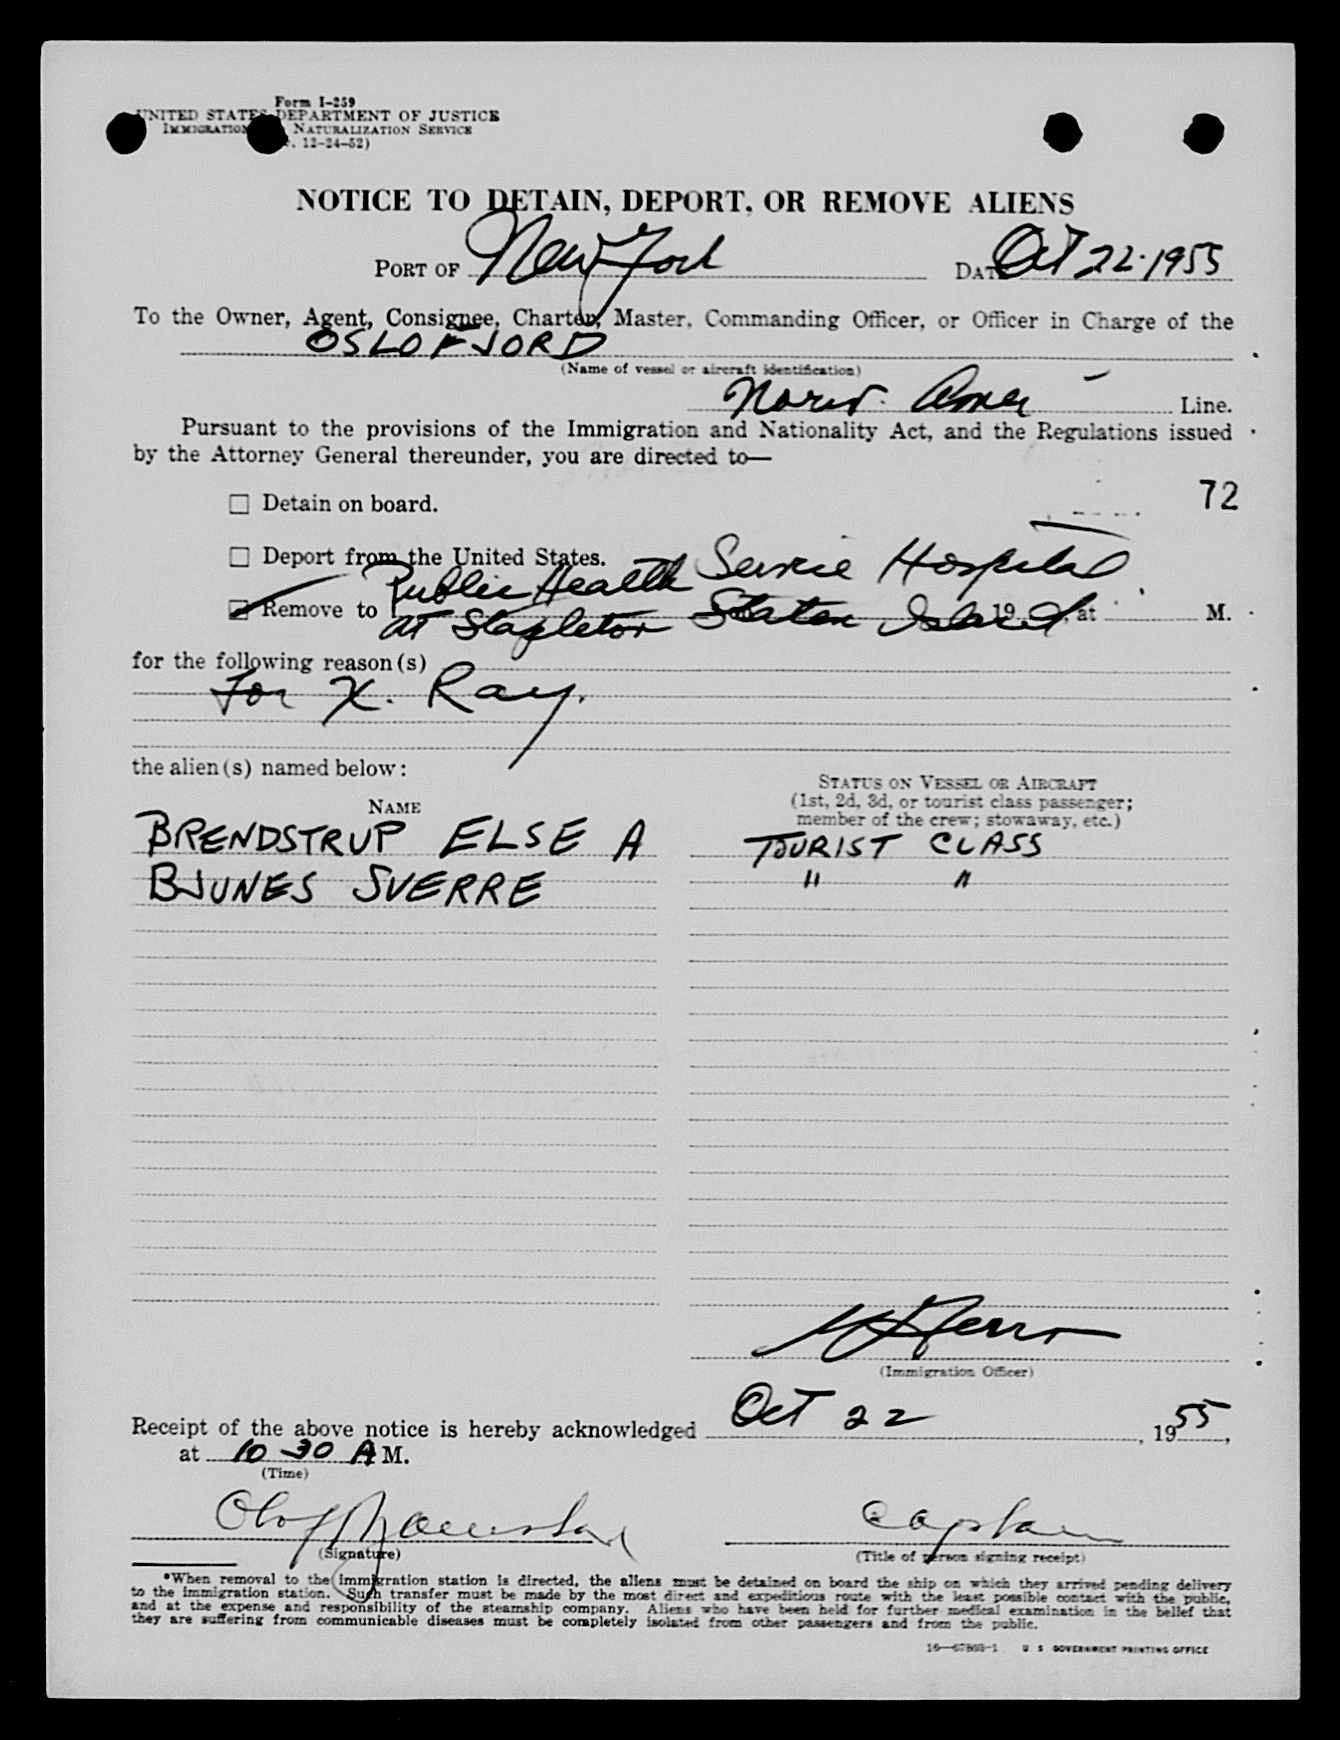 Form I-259
UNITED STATES DEPARTMENT OF JUSTICE
IMMIGRATION NATURALIZATION SERVICE
. 12-24-52)
NOTICE TO DETAIN, DEPORT, OR REMOVE ALIENS
PORT OF New York DATE Oct 22·1955
To the Owner, Agent, Consignee, Charter, Master, Commanding Officer, or Officer in Charge of the
OSLOFJORD
(Name of vessel or aircraft identification)
Norw. Amer Line.
Pursuant to the provisions of the Immigration and Nationality Act, and the Regulations issued
by the Attorney General thereunder, you are directed to—
☐ Detain on board.
72
☐ Deport from the United States.
Public Health Service Hospital
Remove to at Stapleton Staten Island 19 , at M.
for the following reason(s)
For X. Ray.
the alien(s) named below:
NAME
STATUS ON VESSEL OR AIRCRAFT
(1st, 2d, 3d, or tourist class passenger;
member of the crew; stowaway, etc.)
BRENDSTRUP ELSE A TOURIST CLASS
BJUNES SVERRE " "
(Immigration Officer)
Receipt of the above notice is hereby acknowledged Oct 22, 1955,
at 10 30 A M.
(Time)
Olof Captain
(Signature) (Title of person signing receipt)
*When removal to the immigration station is directed, the aliens must be detained on board the ship on which they arrived pending delivery
to the immigration station. Such transfer must be made by the most direct and expeditious route with the least possible contact with the public,
and at the expense and responsibility of the steamship company. Aliens who have been held for further medical examination in the belief that
they are suffering from communicable diseases must be completely isolated from other passengers and from the public.
16—67868-1 U. S. GOVERNMENT PRINTING OFFICE